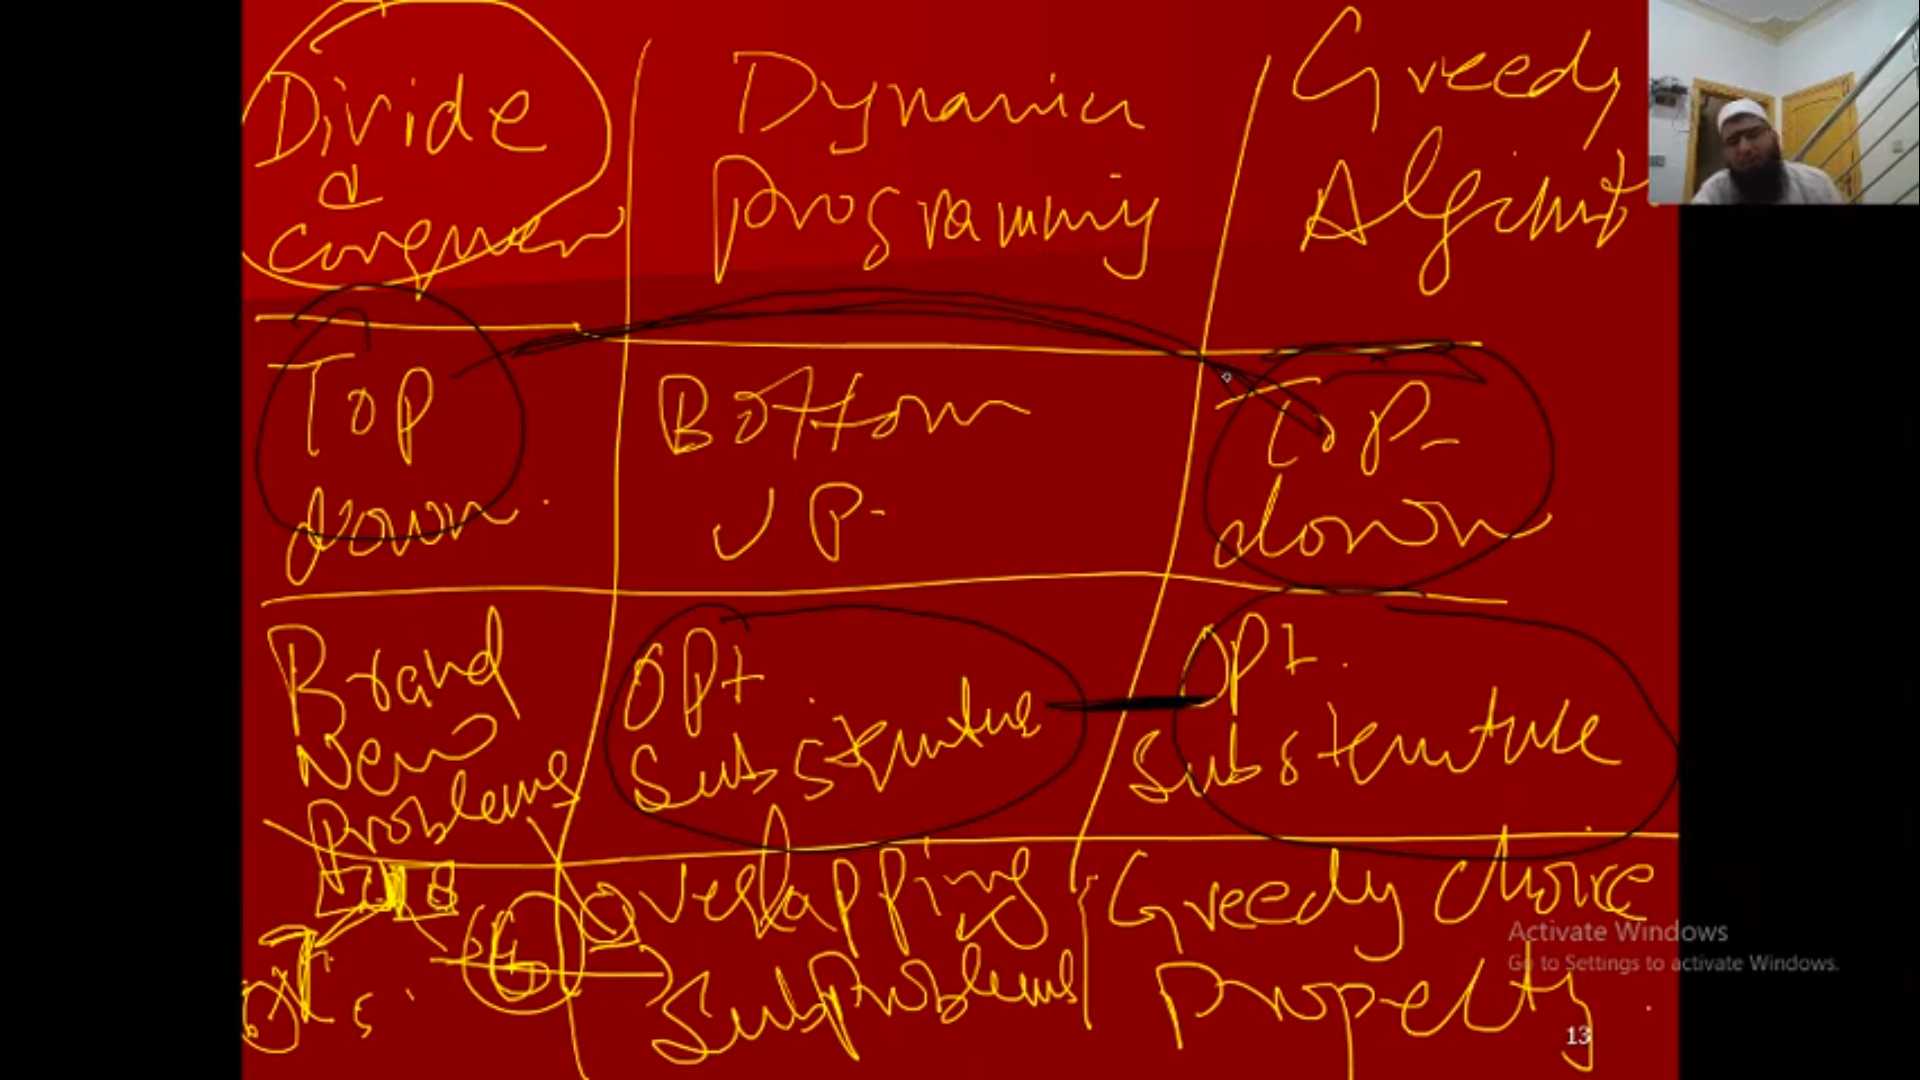 Divide
&
Conquer
Dynamic
Programming
Greedy
Algorithm
Top
down
Bottom
UP
Top-
down
Brand
New
Problems
Opt
Substructure
Opt.
Substructure
Overlapping
Subproblems
Greedy choice
Property
Activate Windows
Go to Settings to activate Windows.
13